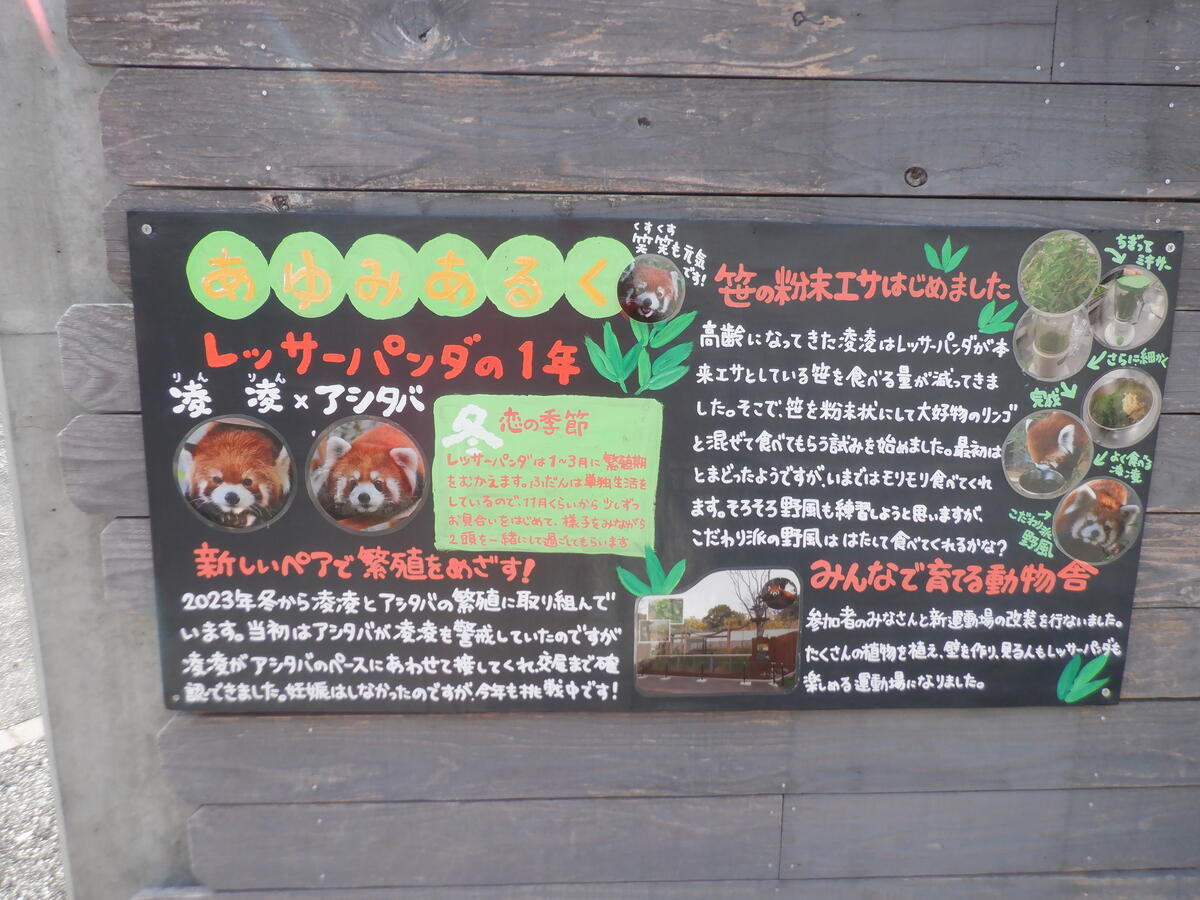 あゆみあるく
くすくす
笑笑も元気
です!
レッサーパンダの1年
りん りん
凌 凌×アシタバ
冬 恋の季節
レッサーパンダは1~3月に繁殖期
をむかえます。ふだんは単独生活を
しているので、11月くらいから少しずつ
お見合いをはじめて、様子をみながら
2頭を一緒にして過ごしてもらいます
新しいペアで繁殖をめざす!
2023年冬から凌凌とアシタバの繁殖に取り組んで
います。当初はアシタバが凌凌を警戒していたのですが
凌凌がアシタバのペースにあわせて接してくれ、交尾まで確
認できました。妊娠はしなかったのですが、今年も挑戦中です!
笹の粉末エサはじめました
高齢になってきた凌凌はレッサーパンダが本
来エサとしている笹を食べる量が減ってきま
した。そこで、笹を粉末状にして大好物のリンゴ
と混ぜて食べてもらう試みを始めました。最初は
とまどったようですが、いまではモリモリ食べてくれ
ます。そろそろ野風も練習しようと思いますが、
こだわり派の野風ははたして食べてくれるかな?
ちぎって
ミキサー
さらに細かく
完成
よく食べる
凌凌
こだわり派
野風
みんなで育てる動物舎
参加者のみなさんと新運動場の改装を行ないました。
たくさんの植物を植え、壁を作り、見る人もレッサーパンダも
楽しめる運動場になりました。